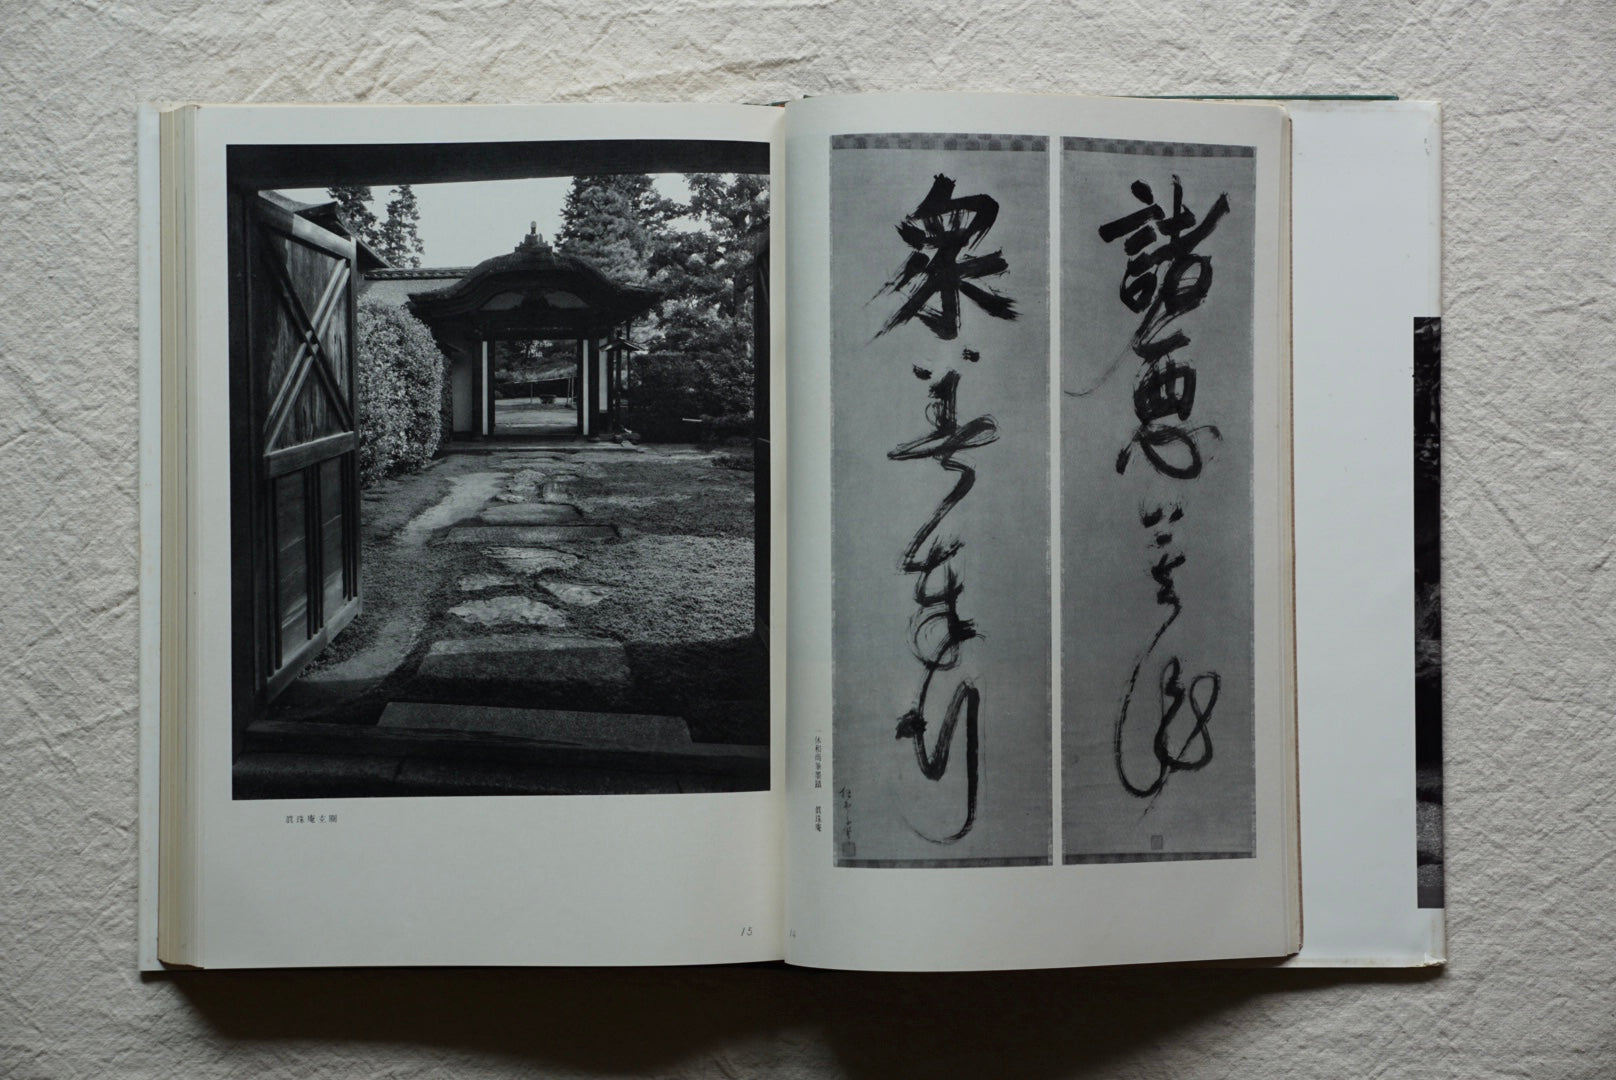 諸悪莫作
衆善奉行
一休和尚筆墨蹟 眞珠庵
14
眞珠庵玄關
15